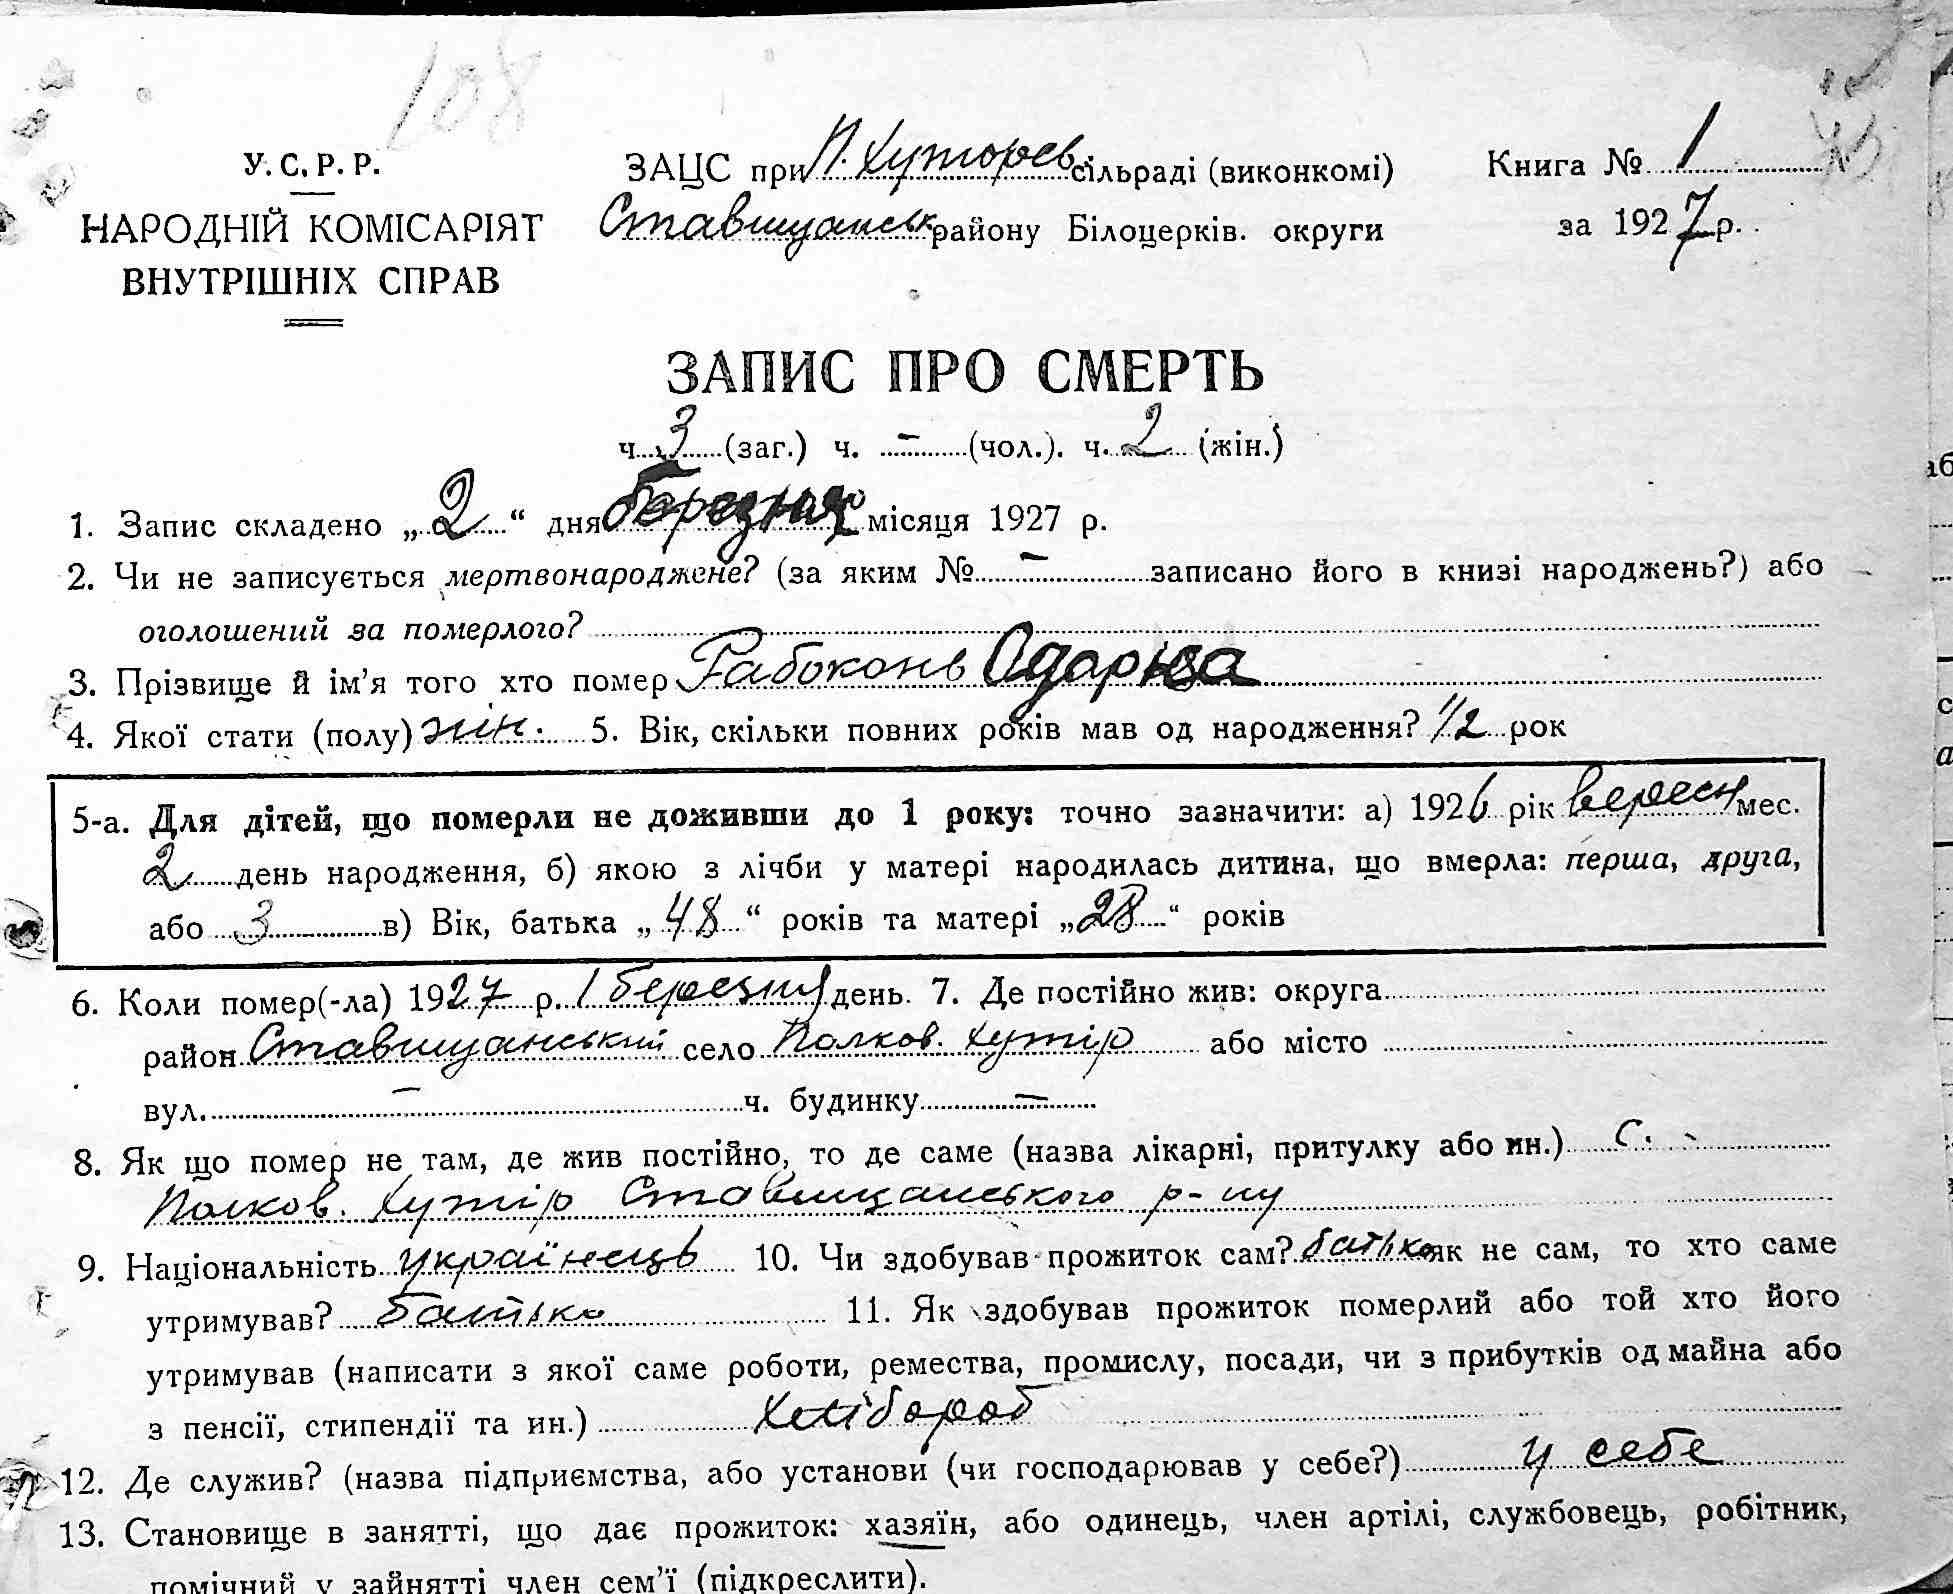 108
У. С. Р. Р.
НАРОДНІЙ КОМІСАРІЯТ
ВНУТРІШНІХ СПРАВ
ЗАЦС при П. Хуторев. сільраді (виконкомі)
Ставищанськ району Білоцерків. округи
Книга № 1
за 1927 р.
ЗАПИС ПРО СМЕРТЬ
ч. 3 (заг.) ч. – (чол.). ч. 2 (жін.)
1. Запис складено „ 2 “ дня березня місяця 1927 р.
2. Чи не записується мертвонароджене? (за яким № – записано його в книзі народжень?) або
оголошений за померлого?
3. Прізвище й ім'я того хто помер Рабоконь Одарка
4. Якої стати (полу) жін. 5. Вік, скільки повних років мав од народження? 1/2 рок
5-а. Для дітей, що померли не доживши до 1 року: точно зазначити: а) 1926 рік вересн мес.
2 день народження, б) якою з лічби у матері народилась дитина, що вмерла: перша, друга,
або 3 в) Вік, батька „ 48 “ років та матері „ 28 “ років
6. Коли помер(-ла) 1927 р. 1 березня день. 7. Де постійно жив: округа
район Ставищанський село Полков. Хутір або місто
вул. – ч. будинку –
8. Як що помер не там, де жив постійно, то де саме (назва лікарні, притулку або ин.) с.
Полков. Хутір Ставищанського р-ну
9. Національність українець 10. Чи здобував прожиток сам? батько як не сам, то хто саме
утримував? батько 11. Як здобував прожиток померлий або той хто його
утримував (написати з якої саме роботи, ремества, промислу, посади, чи з прибутків од майна або
з пенсії, стипендії та ин.) Хлібороб
12. Де служив? (назва підприємства, або установи (чи господарював у себе?) у себе
13. Становище в занятті, що дає прожиток: хазяїн, або одинець, член артілі, службовець, робітник,
помічний у зайнятті член сем'ї (підкреслити).